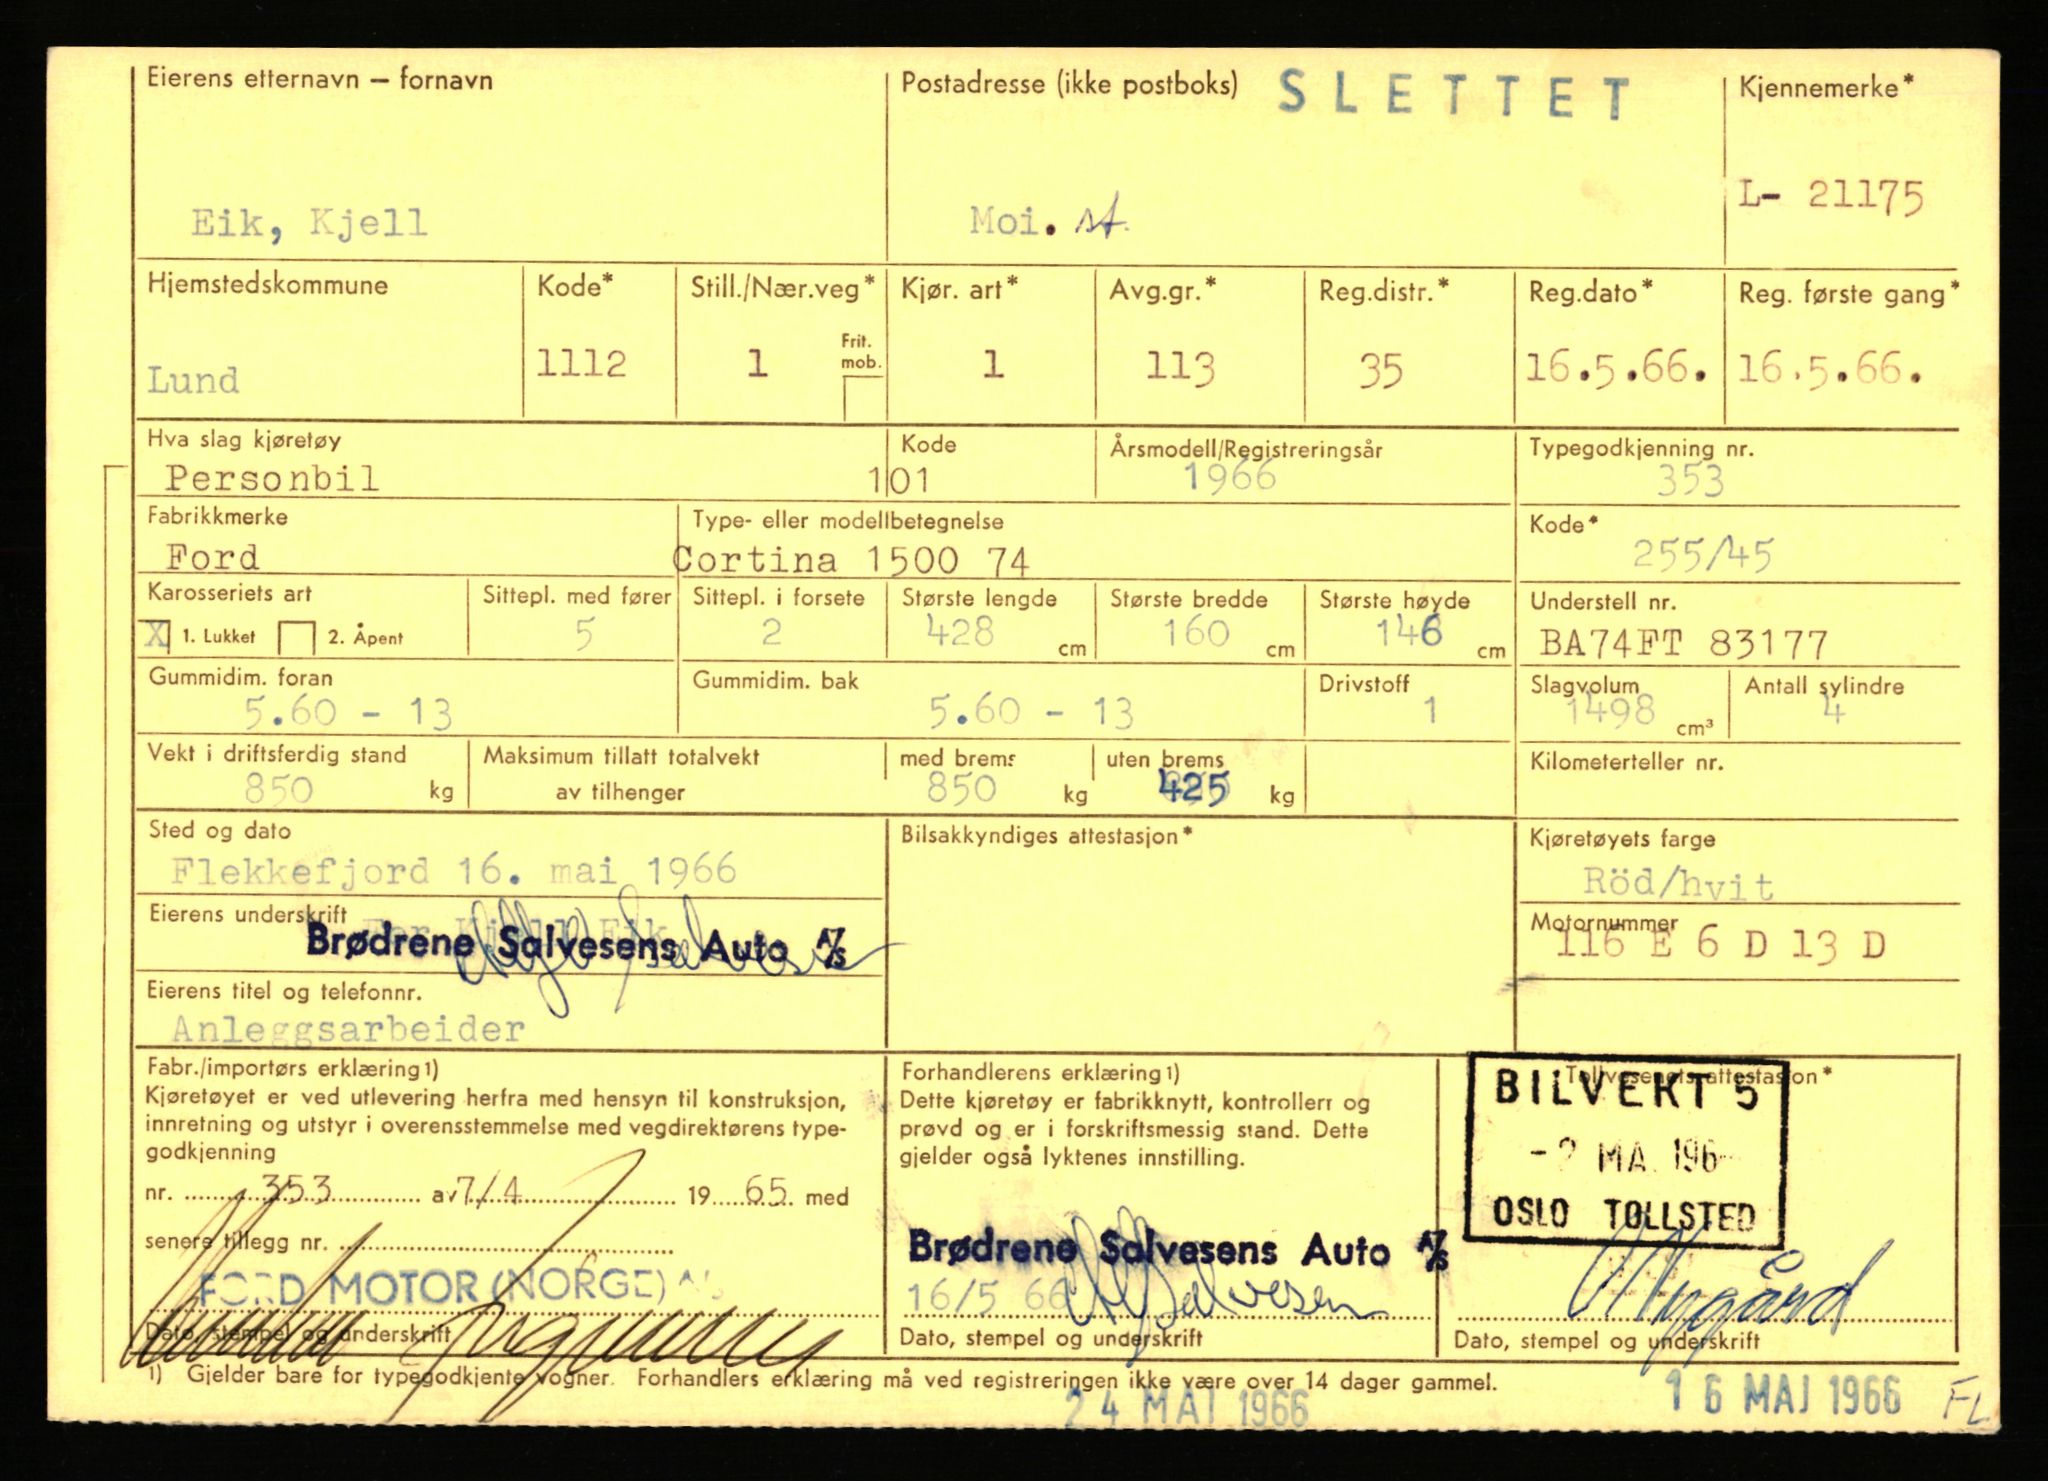 Eierens etternavn – fornavn
Postadresse (ikke postboks)
SLETTET
Kjennemerke*
Eik, Kjell
Moi. st.
L- 21175
Hjemstedskommune
Kode*
Still./Nær.veg*
Kjør. art*
Avg.gr.*
Reg.distr.*
Reg.dato*
Reg. første gang*
Frit.
mob.
Lund
1112
1
1
113
35
16.5.66.
16.5.66.
Hva slag kjøretøy
Kode
Årsmodell/Registreringsår
Typegodkjenning nr.
Personbil
101
1966
353
Fabrikkmerke
Type- eller modellbetegnelse
Kode*
Ford
Cortina 1500 74
255/45
Karosseriets art
Sittepl. med fører
Sittepl. i forsete
Største lengde
Største bredde
Største høyde
Understell nr.
X 1. Lukket
2. Åpent
5
2
428 cm
160 cm
146 cm
BA74FT 83177
Gummidim. foran
Gummidim. bak
Drivstoff
Slagvolum
Antall sylindre
5.60 - 13
5.60 - 13
1
1498 cm³
4
Vekt i driftsferdig stand
Maksimum tillatt totalvekt
med brems
uten brems
Kilometerteller nr.
850 kg
av tilhenger
850 kg
425 kg
Sted og dato
Bilsakkyndiges attestasjon*
Kjøretøyets farge
Flekkefjord 16. mai 1966
Röd/hvit
Eierens underskrift
For Kjell Eik
Motornummer
Brødrene Salvesens Auto A/S
116 E 6 D 13 D
Eierens titel og telefonnr.
Anleggsarbeider
Fabr./importørs erklæring 1)
Kjøretøyet er ved utlevering herfra med hensyn til konstruksjon,
innretning og utstyr i overensstemmelse med vegdirektørens type-
godkjenning
nr. 353 av 7/4 1965 med
senere tillegg nr.
FORD MOTOR (NORGE) A/S
Dato, stempel og underskrift
Forhandlerens erklæring 1)
Dette kjøretøy er fabrikknytt, kontrollert og
prøvd og er i forskriftsmessig stand. Dette
gjelder også lyktenes innstilling.
Brødrene Salvesens Auto A/S
16/5 66
Salvesen
Dato, stempel og underskrift
Tollvesenets attestasjon*
BILVEKT 5
-2 MA. 196
OSLO TOLLSTED
Nygård
Dato, stempel og underskrift
1) Gjelder bare for typegodkjente vogner. Forhandlers erklæring må ved registreringen ikke være over 14 dager gammel.
24 MAI 1966
16 MAI 1966
FL